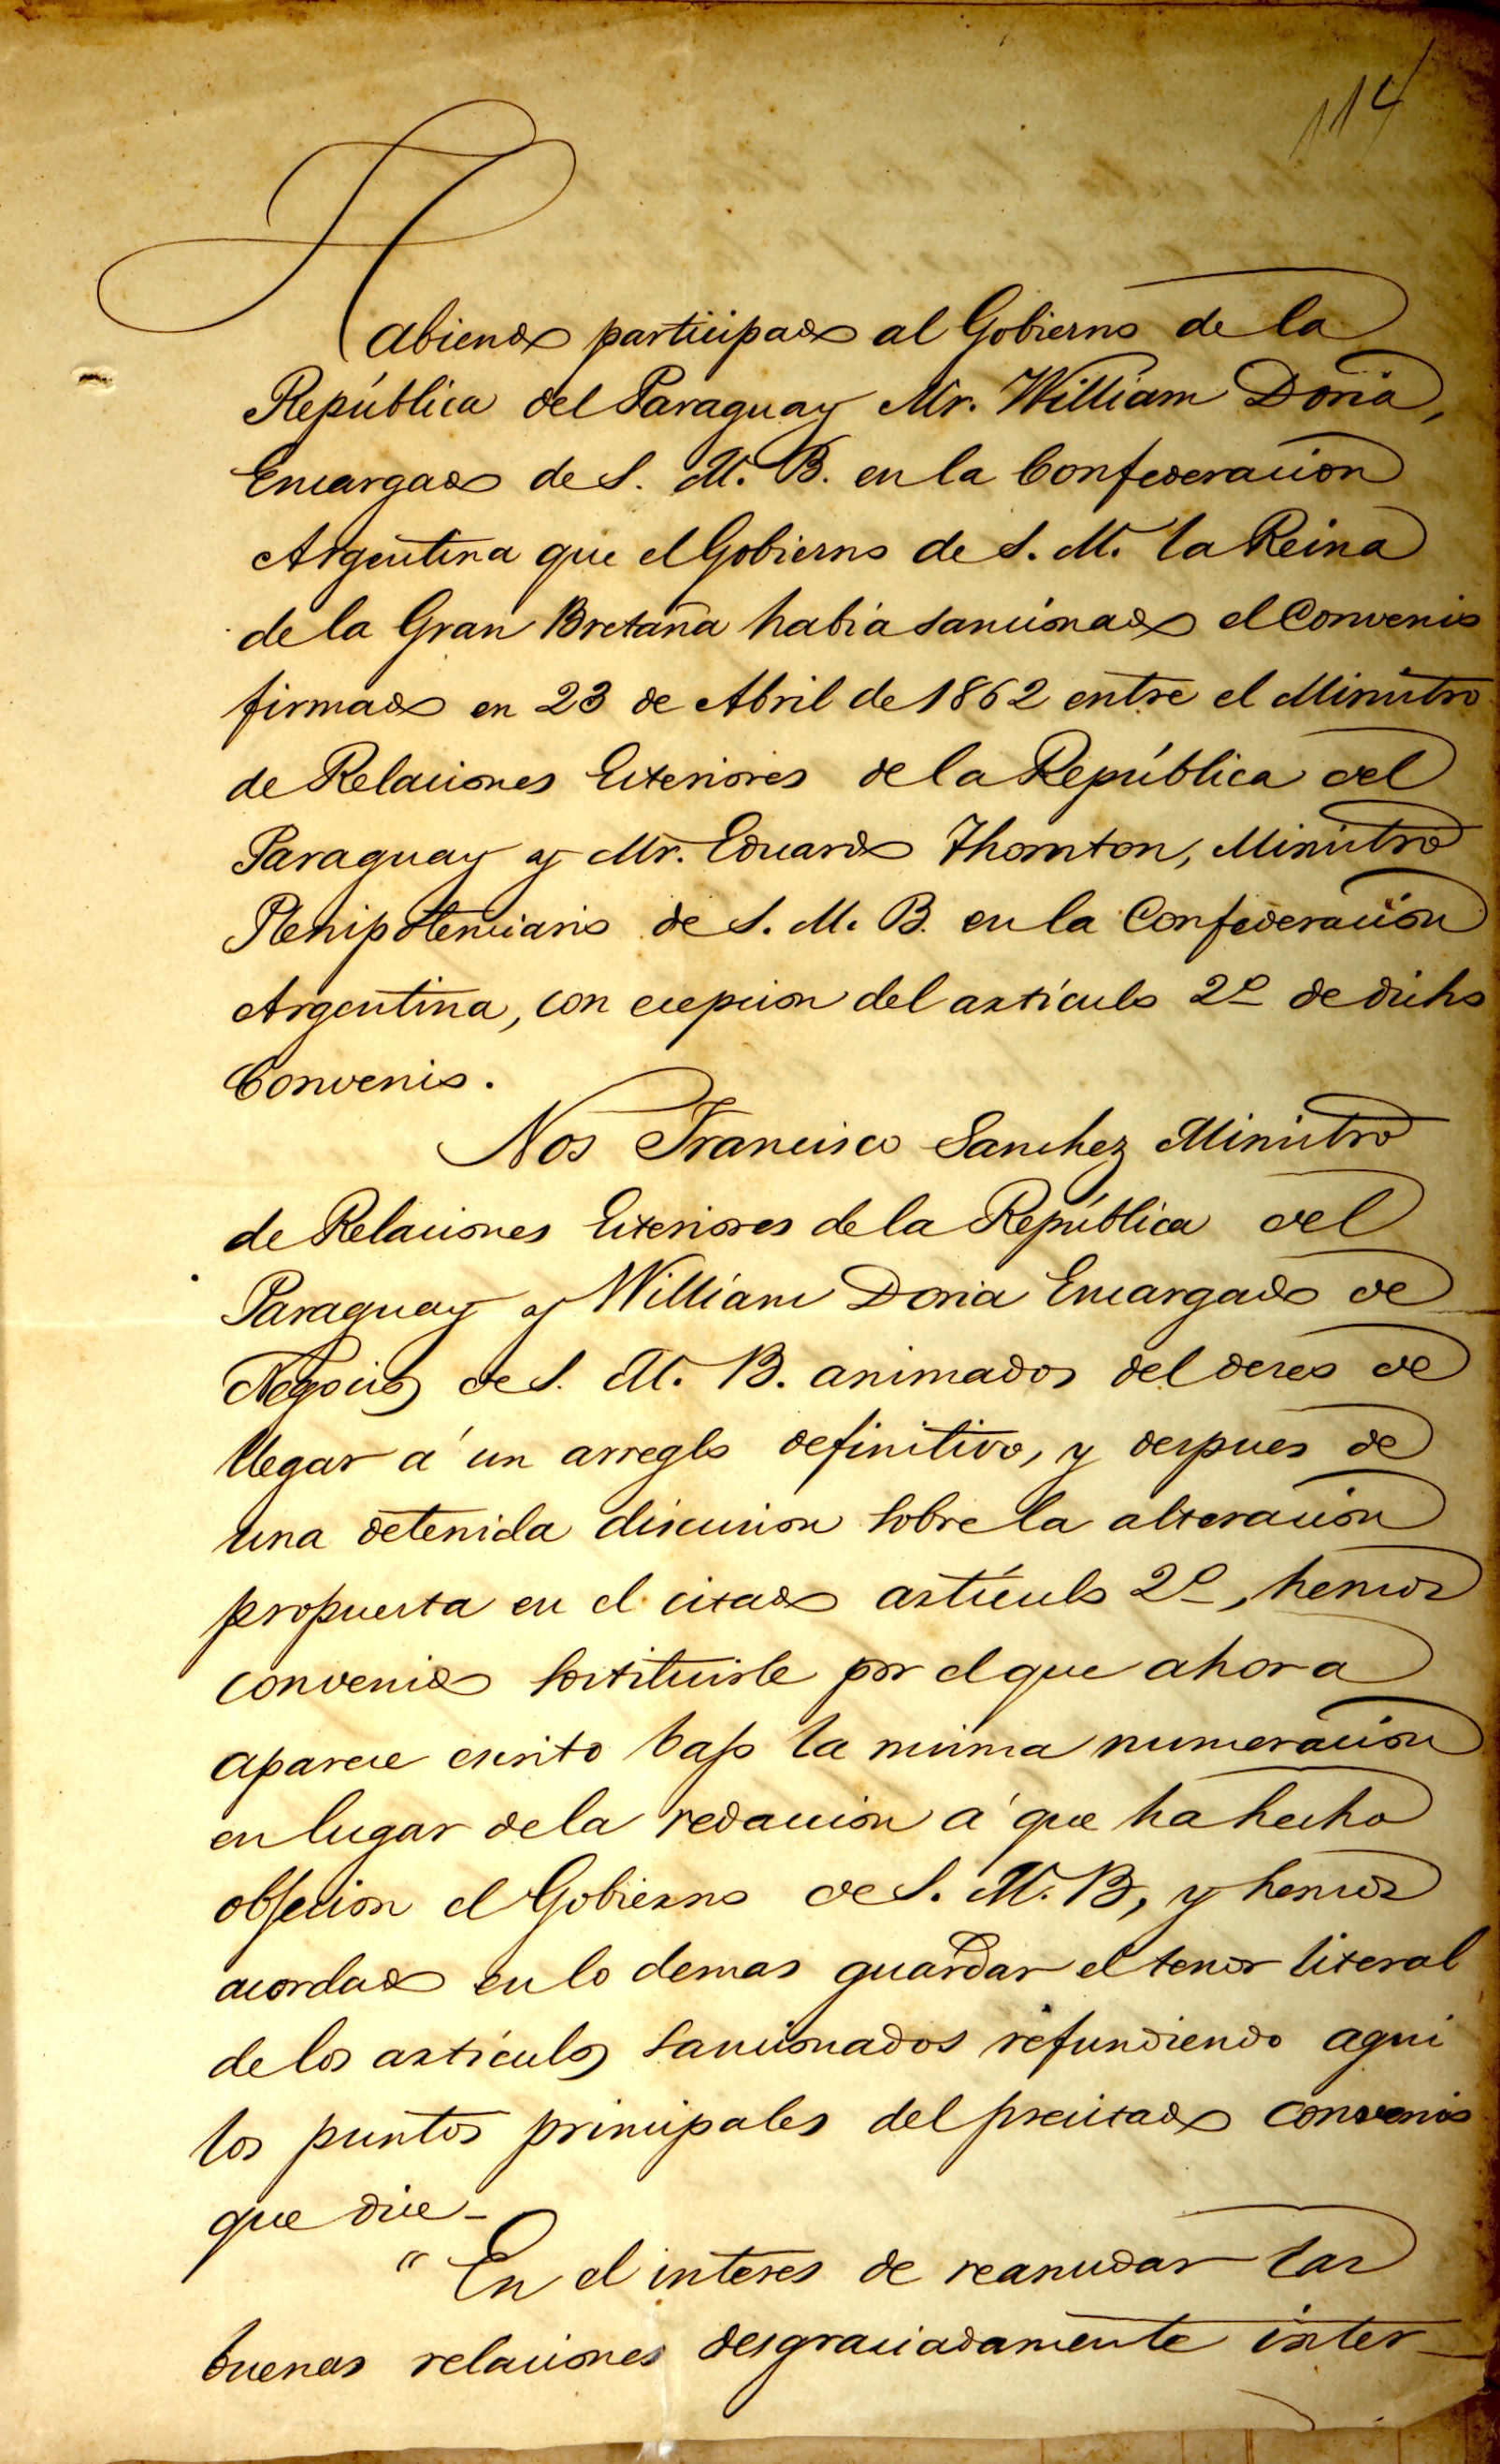 114
Habiendo participado al Gobierno de la
República del Paraguay Mr. William Doria,
Encargado de S. M. B. en la Confederacion
Argentina que el Gobierno de S. M. la Reina
de la Gran Bretaña habia sancionado el Convenio
firmado en 23 de Abril de 1862 entre el Ministro
de Relaciones Exteriores de la República del
Paraguay y Mr. Eduardo Thornton, Ministro
Plenipotenciario de S. M. B. en la Confederacion
Argentina, con ecepcion del artículo 2º de dicho
Convenio.
Nos Francisco Sanchez Ministro
de Relaciones Exteriores de la República del
Paraguay y William Doria Encargado de
Negocios de S. M. B. animados del deseo de
llegar á un arreglo definitivo, y despues de
una detenida discusion sobre la alteracion
propuesta en el citado artículo 2º, hemos
convenido sostituirle por el que ahora
aparece escrito bajo la misma numeracion
en lugar de la redaccion á que ha hecho
objecion el Gobierno de S. M. B, y hemos
acordado en lo demas guardar el tenor literal
de los artículos sancionados refundiendo aqui
los puntos principales del precitado convenio
que dice_
"En el interes de reanudar las
buenas relaciones desgraciadamente inter_